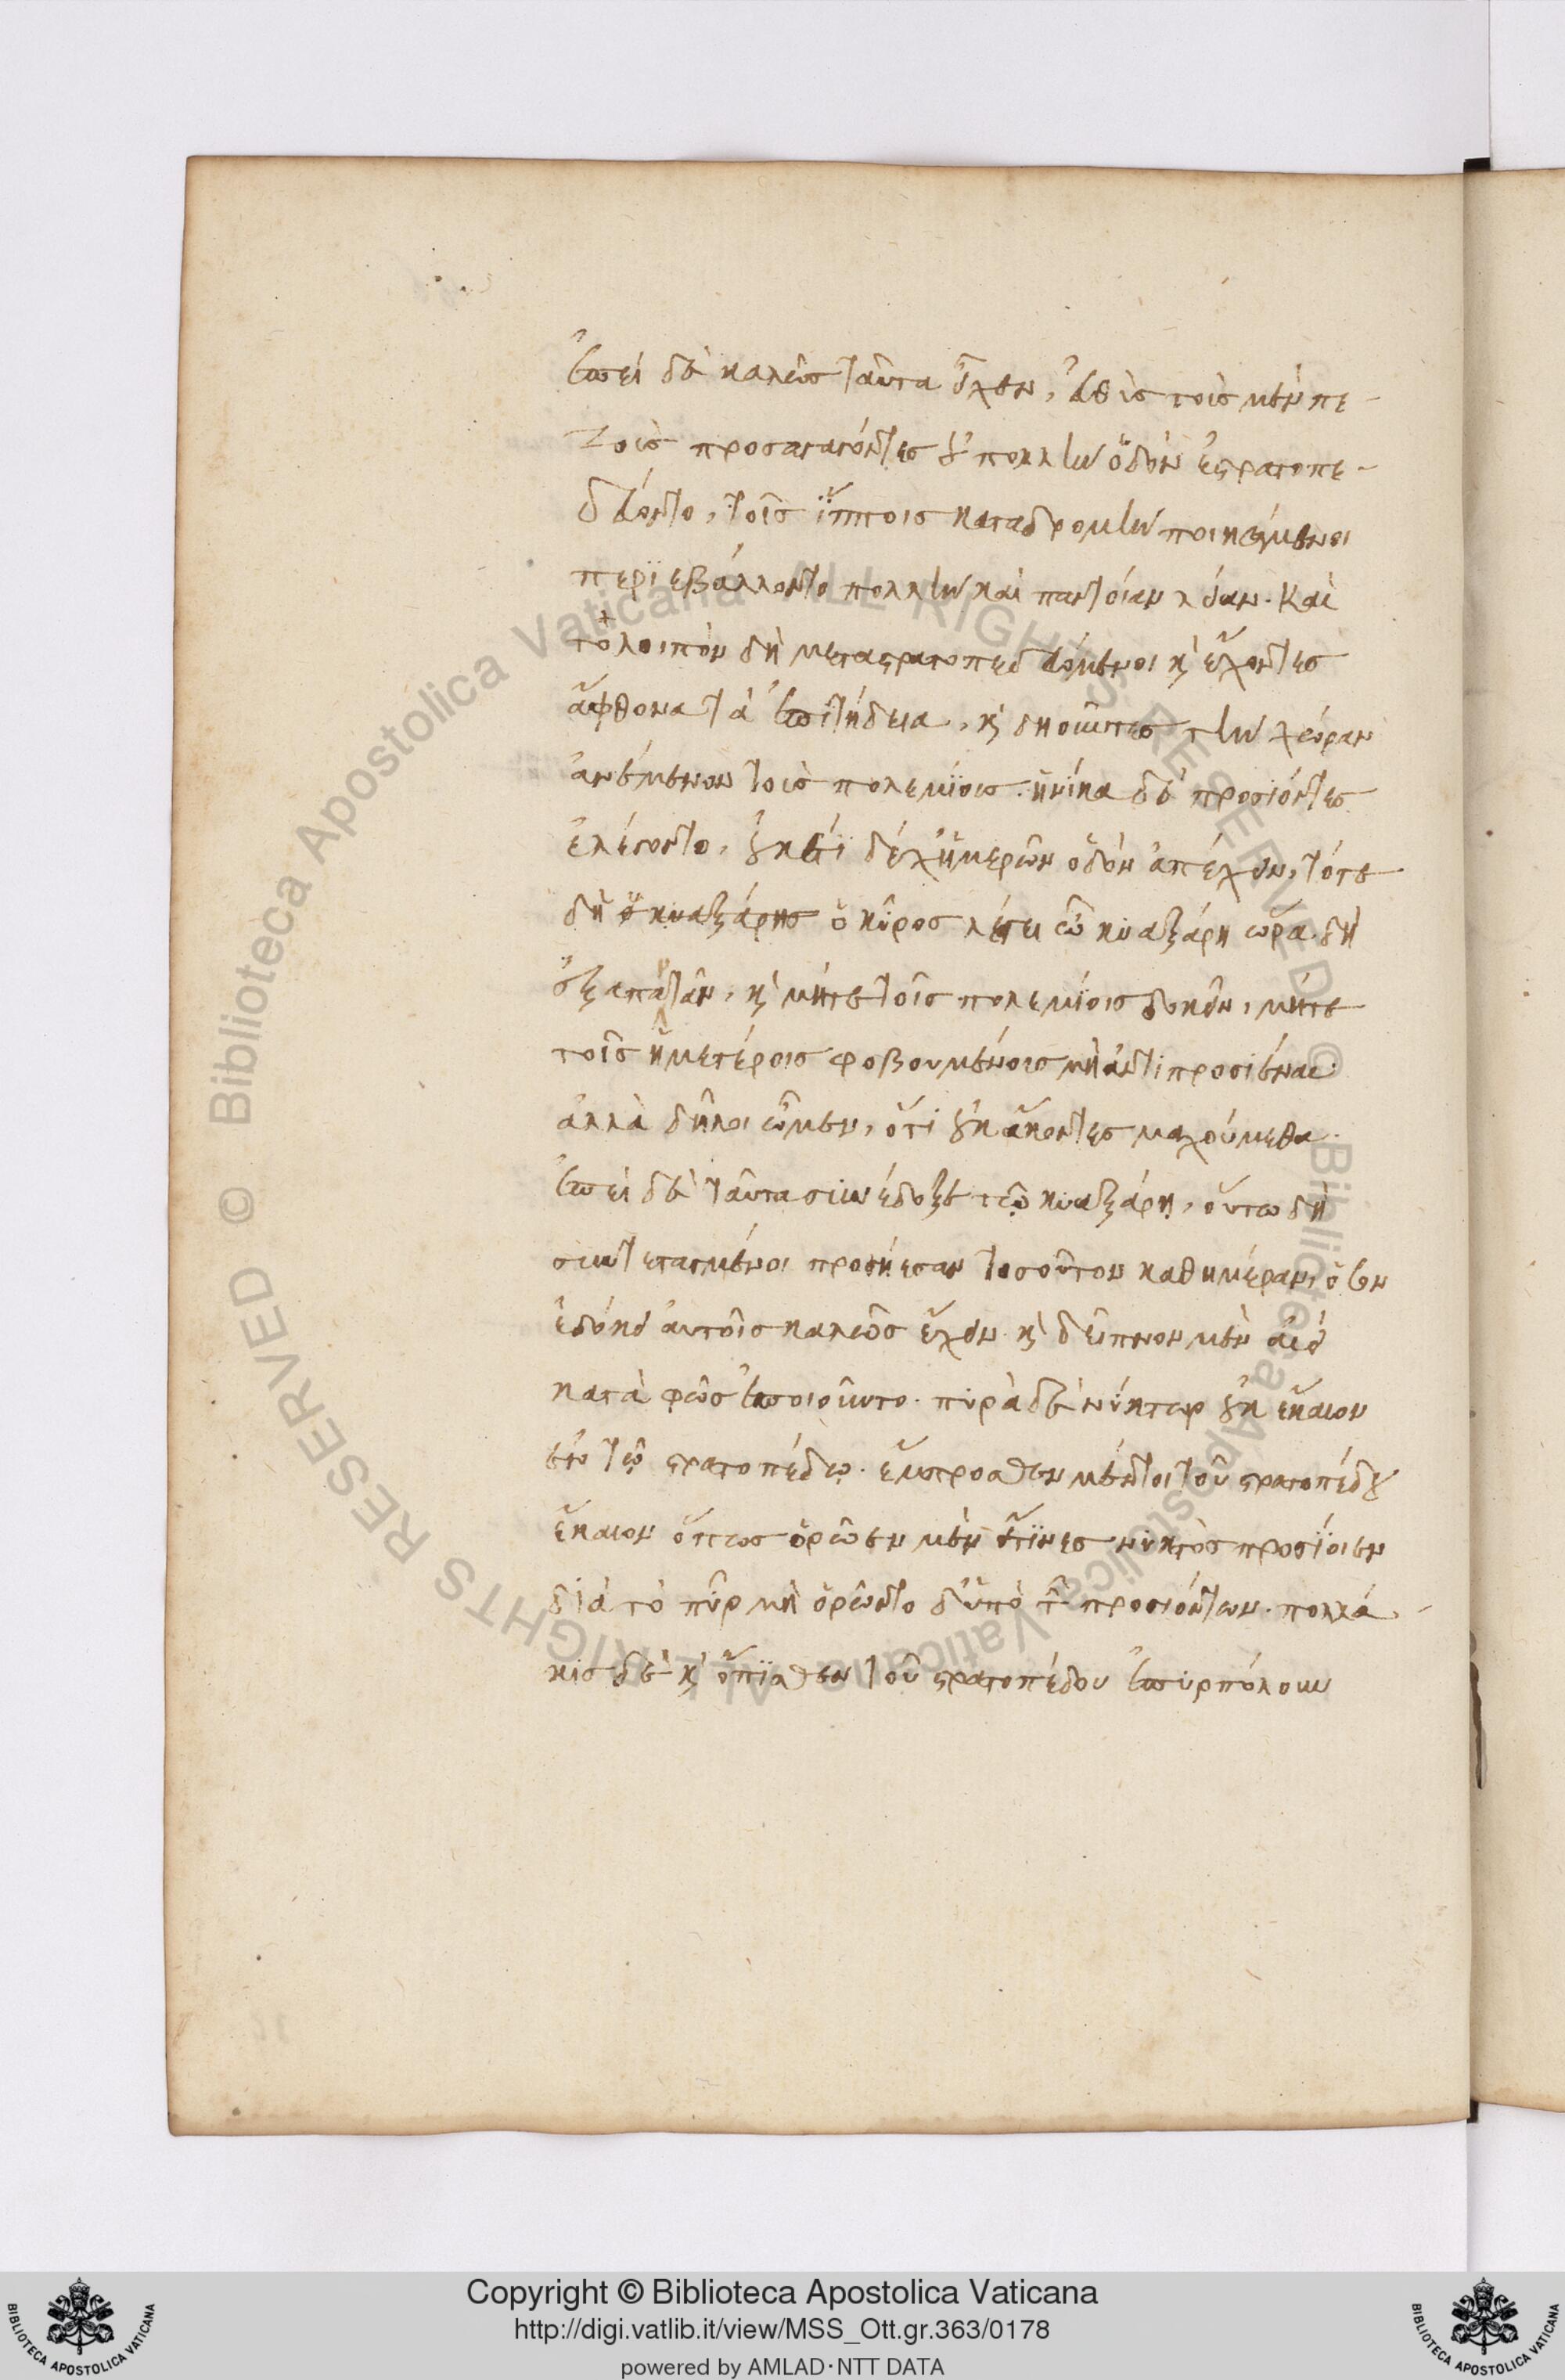 ἐπεὶ δὲ καλῶς ταῦτα εἶχεν, εὐθὺς τοῖς μὲν πε-
ζοῖς προσαγαγόντες οὐ πολλὴν ὁδὸν ἐστρατοπε-
δεύοντο, τοῖς ἵπποις καταδρομὴν ποιησάμενοι
περιεβάλλοντο πολλὴν καὶ παντοίαν λείαν. Καὶ
τὸ λοιπὸν δὴ μεταστρατοπεδευόμενοι καὶ ἔχοντες
ἄφθονα τὰ ἐπιτήδεια, καὶ δῃοῦντες τὴν χώραν
ἀνέμενον τοὺς πολεμίους. ἡνίκα δὲ προσιόντες
ἐλέγοντο, οὐκέτι δέχ ἡμερῶν ὁδὸν ἀπέχειν, τότε
δὴ ὁ κυαξάρης ὁ κῦρος λέγει ὦ κυαξάρη ὥρα δὴ
ἀπαντᾶν, καὶ μήτε τοῖς πολεμίοις δοκεῖν, μήτε
τοῖς ἡμετέροις φοβουμένοις μὴ ἀντιπροσιέναι.
ἀλλὰ δῆλοι ὦμεν, ὅτι οὐκ ἄκοντες μαχούμεθα.
ἐπεὶ δὲ ταῦτα συνέδοξε τῷ κυαξάρῃ, οὕτω δὴ
συντεταγμένοι προσῄεσαν τοσοῦτον καθημέραν, ὅσον
ἐδόκει αὐτοῖς καλῶς ἔχειν. καὶ δεῖπνον μὲν αἰεὶ
κατὰ φῶς ἐποιοῦντο. πυρὰ δὲ νύκτωρ οὐκ ἔκαιον
ἐν τῷ στρατοπέδῳ. ἔμπροσθεν μέντοι τοῦ στρατοπέδου
ἔκαιον ὅπως ὁρῷεν μὲν εἴ τινες νυκτὸς προσίοιεν
διὰ τὸ πῦρ μὴ ὁρῷντο δ' ὑπὸ τῶν προσιόντων. πολλά-
κις δὲ καὶ ὄπισθεν τοῦ στρατοπέδου ἐπυρπόλουν
Copyright © Biblioteca Apostolica Vaticana
http://digi.vatlib.it/view/MSS_Ott.gr.363/0178
powered by AMLAD·NTT DATA